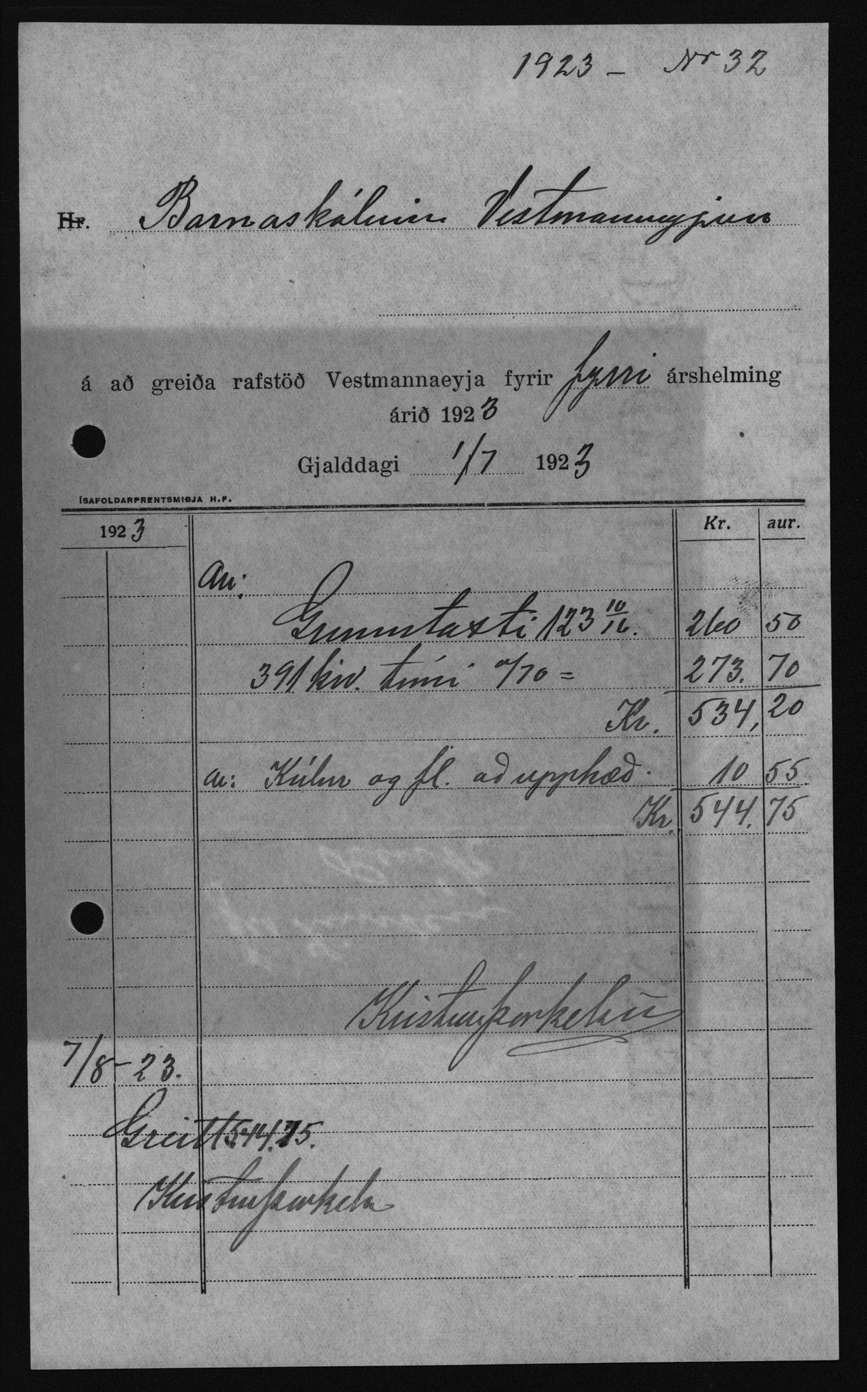 1923 - Nr 32
Hr. Barnaskólinn Vestmannaeyjum
á að greiða rafstöð Vestmannaeyja fyrir fyrri árshelming
árið 1923
Gjalddagi 1/7 1923
ÍSAFOLDARPRENTSMIÐJA H.F.
1923 Kr. aur.
An:
Grunntaxti 123 10/16. 260 50
391 kw. tími 0/70 = 273. 70
Kr. 534, 20
an: Kúlur og fl. að upphæð. 10 55
Kr. 544. 75
7/8 - 23.
Greitt 544.75.